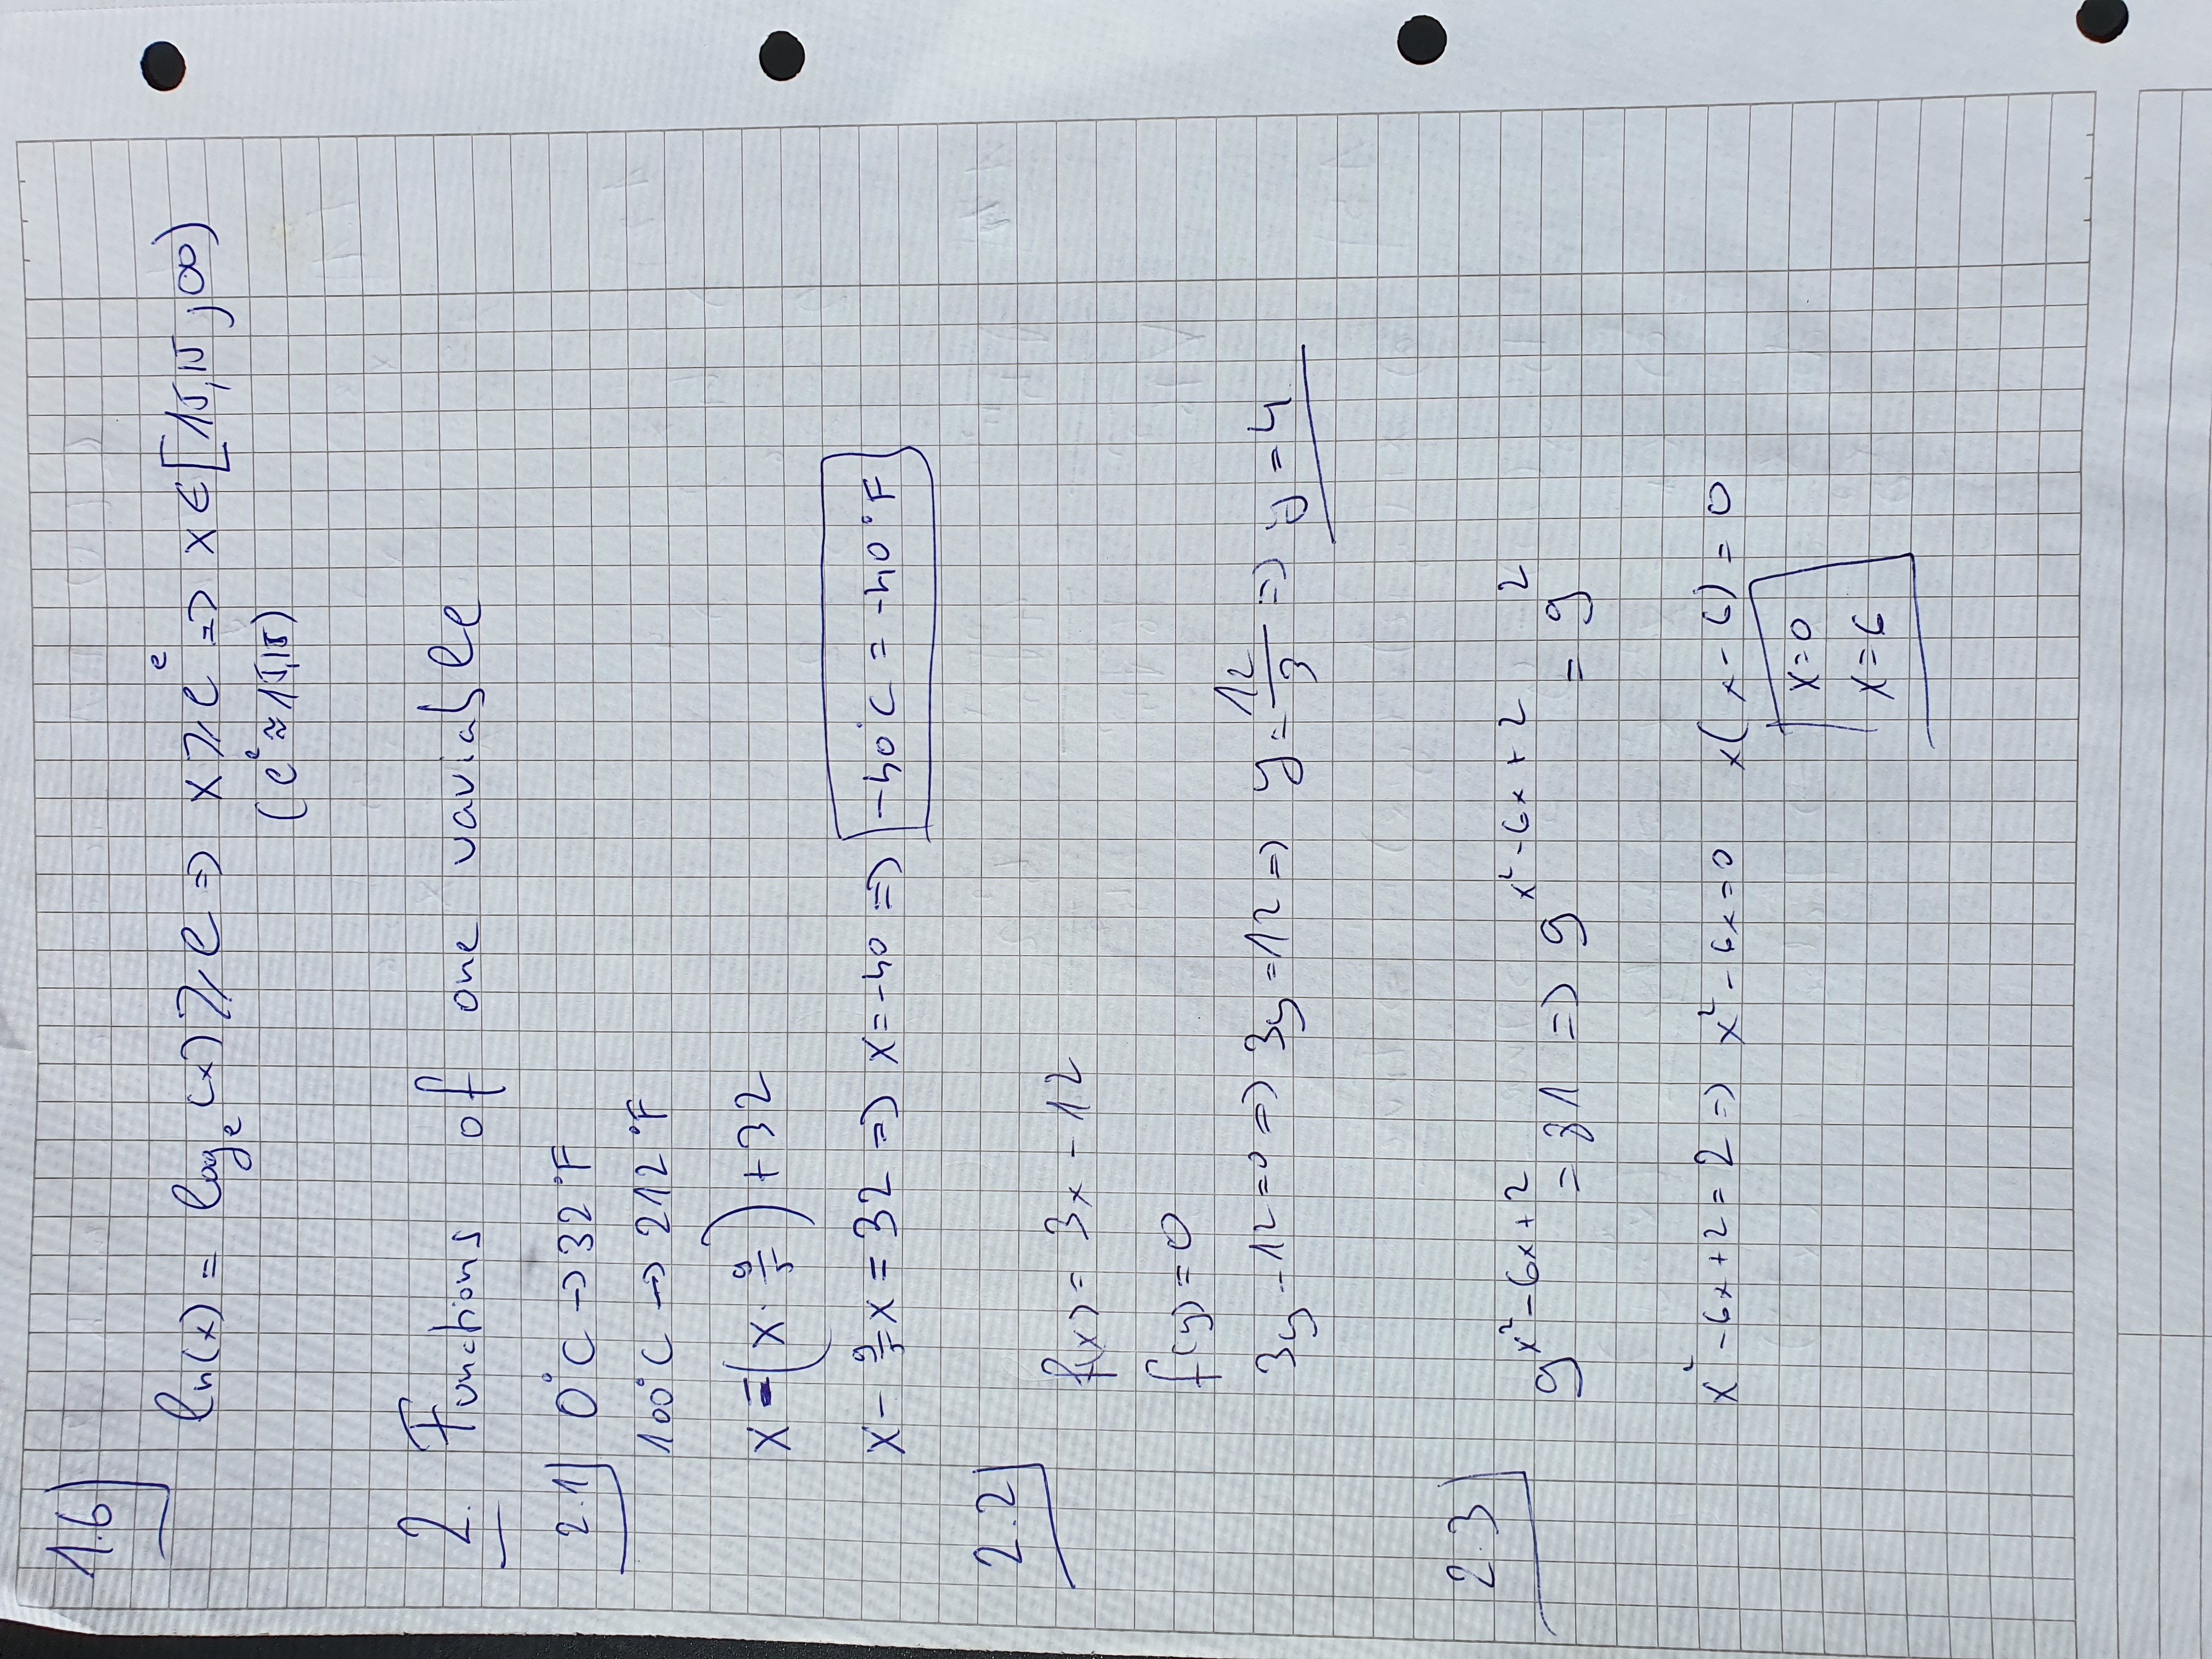 1.6)
ln(x) = log_e(x) ⩾ e => x ⩾ e^e => x ∈ [15,15 ; ∞)
(e^e ≈ 15,15)
2. Functions of one variable
2.1) 0°C -> 32°F
100°C -> 212°F
x = (x · 9/5) + 32
x - 9/5 x = 32 => x = -40 => -40°C = -40°F
2.2)
f(x) = 3x - 12
f(y) = 0
3y - 12 = 0 => 3y = 12 => y = 12/3 => y = 4
2.3)
9^(x²-6x+2) = 81 => 9^(x²-6x+2) = 9²
x² - 6x + 2 = 2 => x² - 6x = 0 x(x - 6) = 0
x = 0
x = 6